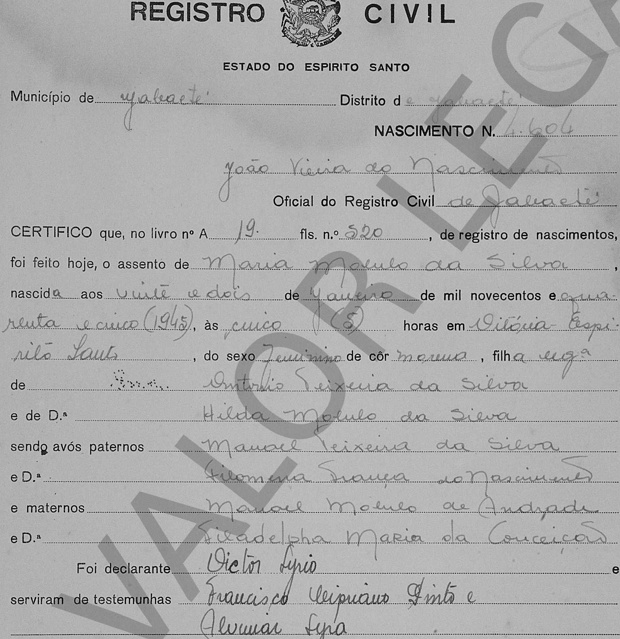 REGISTRO CIVIL
ESTADO DO ESPIRITO SANTO
Município de Jabaeté Distrito de Jabaeté
NASCIMENTO N. 4.604
João Vieira do Nascimento
Oficial do Registro Civil de Jabaeté
CERTIFICO que, no livro nº A 19. fls. n.º 520, de registro de nascimentos,
foi feito hoje, o assento de Maria Motulo da Silva,
nascida aos vinte e dois de Janeiro de mil novecentos e qua-
renta e cinco (1945), às cinco (5) horas em Vitória Espi-
rito Santo, do sexo Feminino de côr morena, filha
de Antonio Teixeira da Silva
e de D.ª Hilda Motulo da Silva
sendo avós paternos Manoel Teixeira da Silva
e D.ª Filomena França do Nascimento
e maternos Manoel Motulo de Andrade
e D.ª Filadelpha Maria da Conceição
Foi declarante Victor Syrio e
serviram de testemunhas Francisco Cipriano Pinto e
Alvimar Lyra
VALOR LEGA